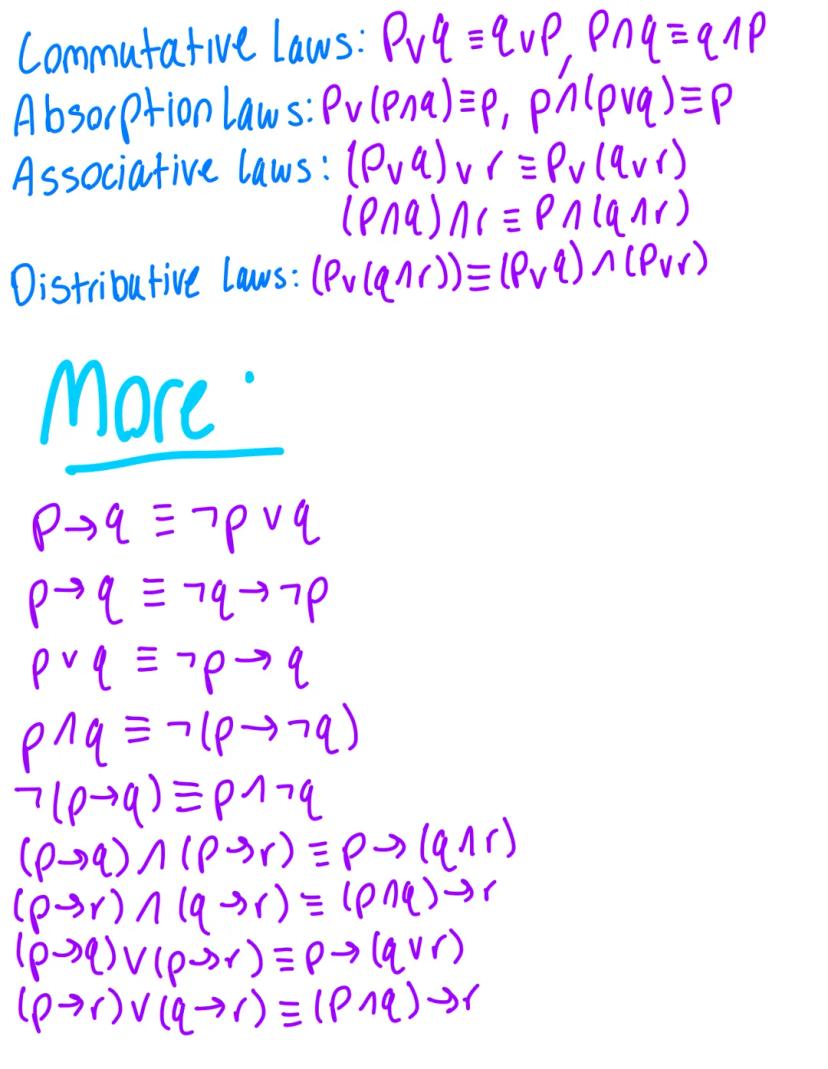 Commutative Laws: p∨q ≡ q∨p, p∧q ≡ q∧p
Absorption Laws: p∨(p∧q) ≡ p, p∧(p∨q) ≡ p
Associative Laws: (p∨q)∨r ≡ p∨(q∨r)
(p∧q)∧r ≡ p∧(q∧r)
Distributive Laws: (p∨(q∧r)) ≡ (p∨q)∧(p∨r)
More:
p→q ≡ ¬p∨q
p→q ≡ ¬q→¬p
p∨q ≡ ¬p→q
p∧q ≡ ¬(p→¬q)
¬(p→q) ≡ p∧¬q
(p→q)∧(p→r) ≡ p→(q∧r)
(p→r)∧(q→r) ≡ (p∧q)→r
(p→q)∨(p→r) ≡ p→(q∨r)
(p→r)∨(q→r) ≡ (p∧q)→r